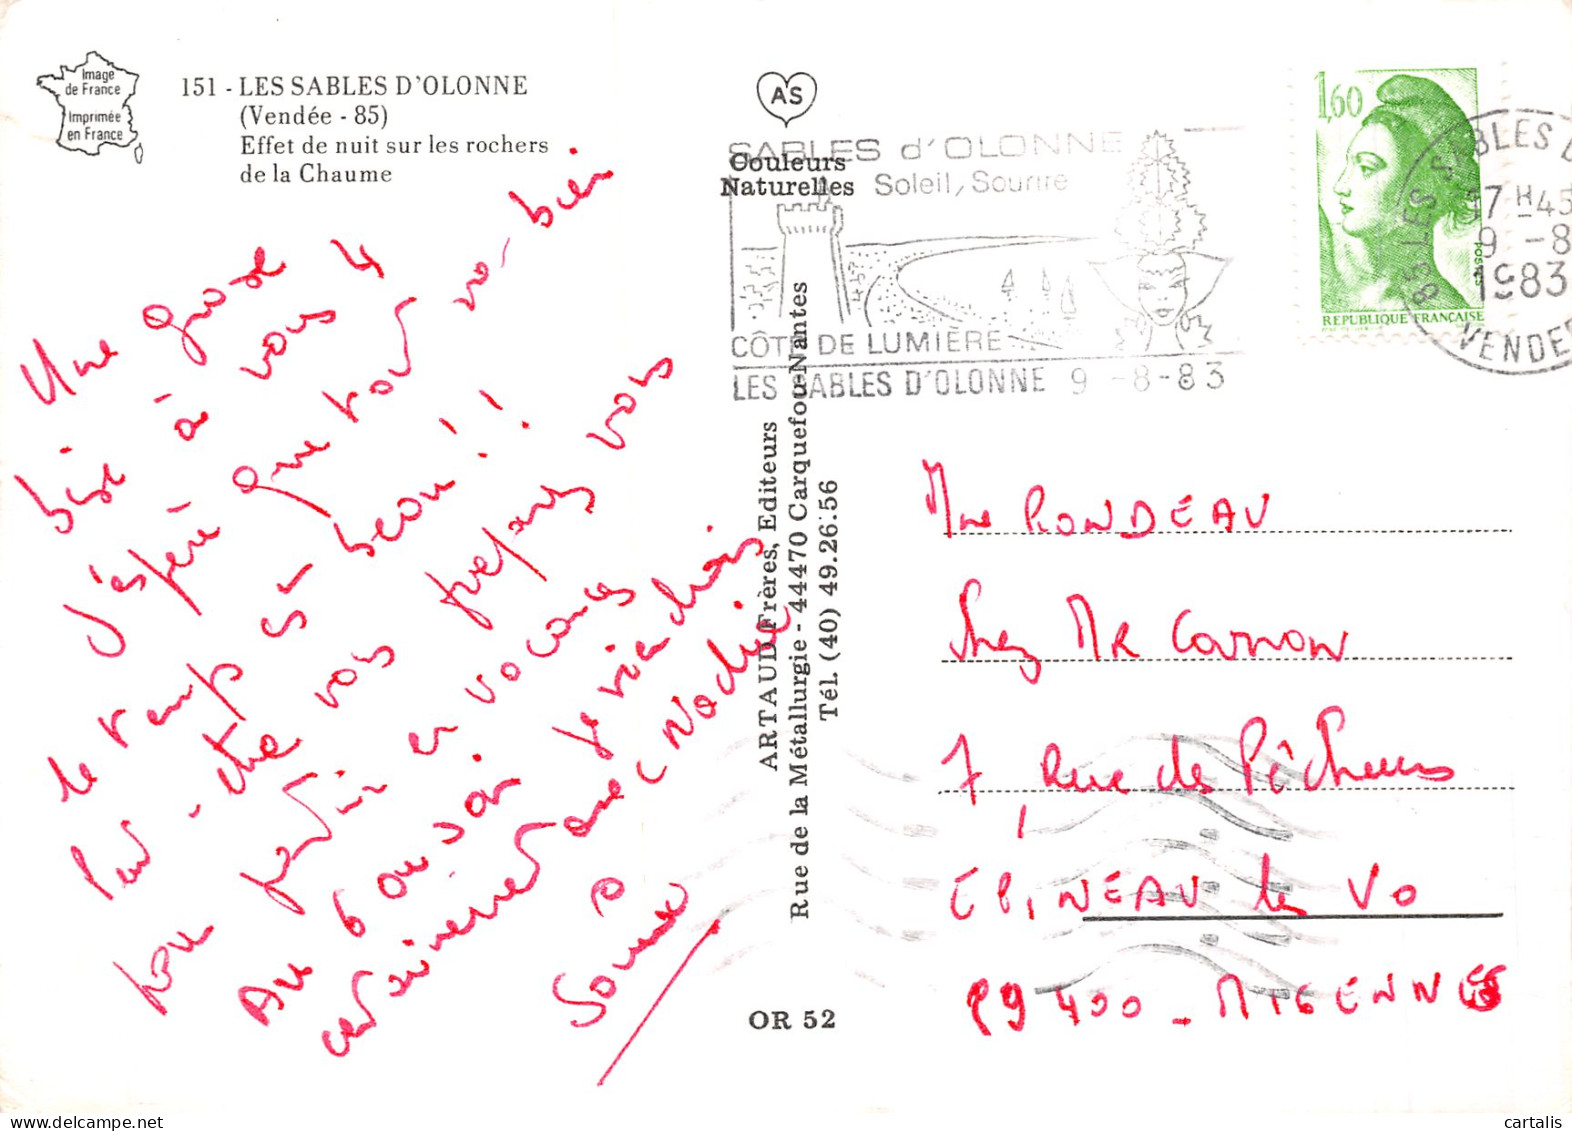 Image
de France
Imprimée
en France
151 - LES SABLES D'OLONNE
(Vendée - 85)
Effet de nuit sur les rochers
de la Chaume
AS
Couleurs
Naturelles
SABLES d'OLONNE
Soleil, Sourire
CÔTE DE LUMIÈRE
LES SABLES D'OLONNE 9 -8-83
1,60
POSTES
REPUBLIQUE FRANÇAISE
85 LES SABLES D
17 H 45
9 -8
1983
VENDEE
Une grosse
bise à vous 4
J'espère que tout va bien
le temps est beau !!
Peut-être vous préparez vous
pour partir en vacances
Au bouvoir je viendrais
certainement avec Nadine
Sonia
ARTAUD Frères, Editeurs
Rue de la Métallurgie - 44470 Carquefou-Nantes
Tél. (40) 49.26.56
OR 52
Mme RONDEAU
Chez MR
7, Rue des Pêcheurs
EPINEAU les Vo
89400 - MIGENNES
cartalis